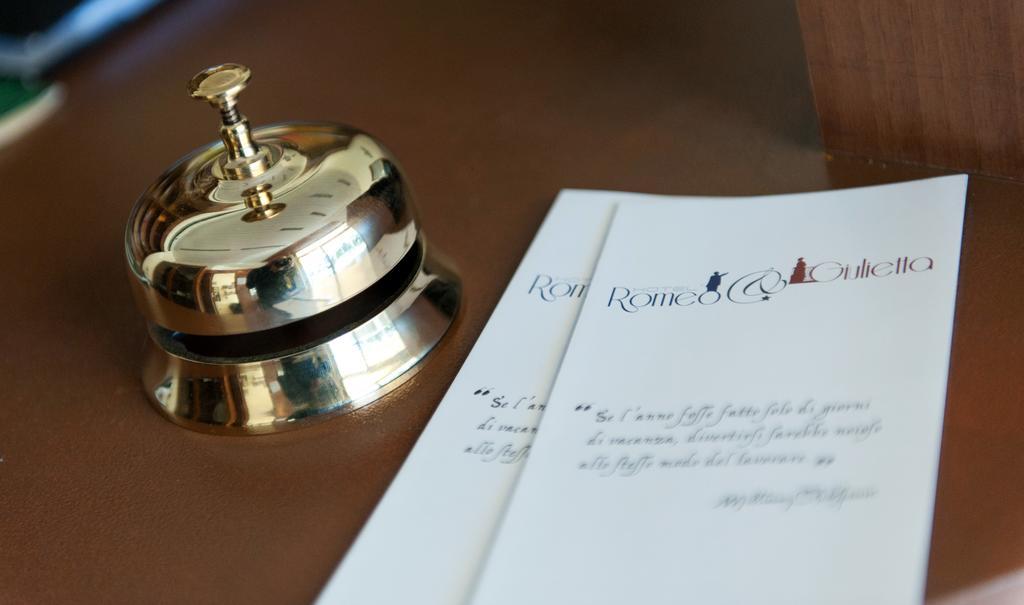 HOTEL
Romeo & Giulietta
“ Se l'anno fosse fatto solo di giorni
di vacanza, divertirsi sarebbe noioso
allo stesso modo del lavorare ”
Rom
“ Se l'an
di vacan
allo stess